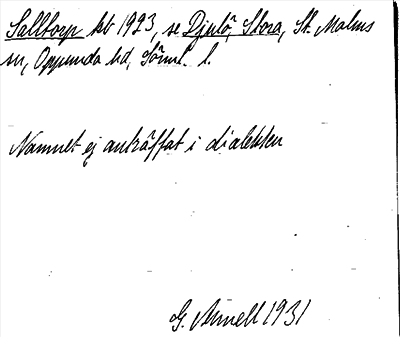 Salltorp kb 1923, se Djulö, Stora, St. Malms
sn, Oppunda hd, Söml. l.
Namnet ej anträffat i dialekten
G. Arnell 1931